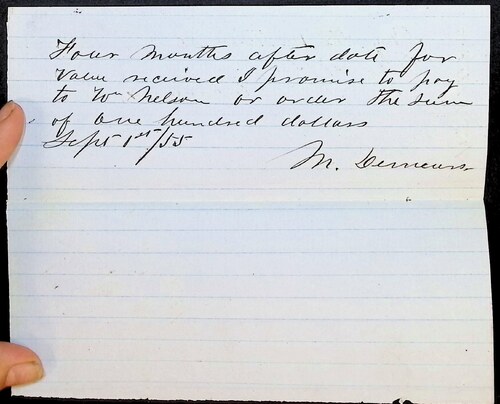 Four months after date for
Value received I promise to pay
to Wm Nelson or order the sum
of one hundred dollars
Sept 1st/55
M. Demears